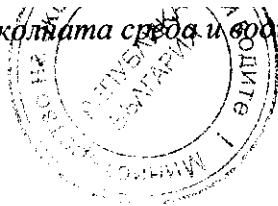 колната среда и вод
РЕПУБЛИКА
БЪЛГАРИЯ
ВОДИТЕ 1
МИНИ